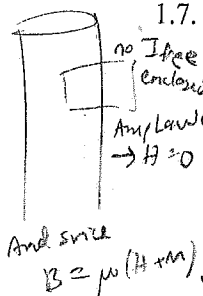 1.7.
no I free
enclosed
Amp Law
→ H = 0
And since
B = μ0 (H + M),